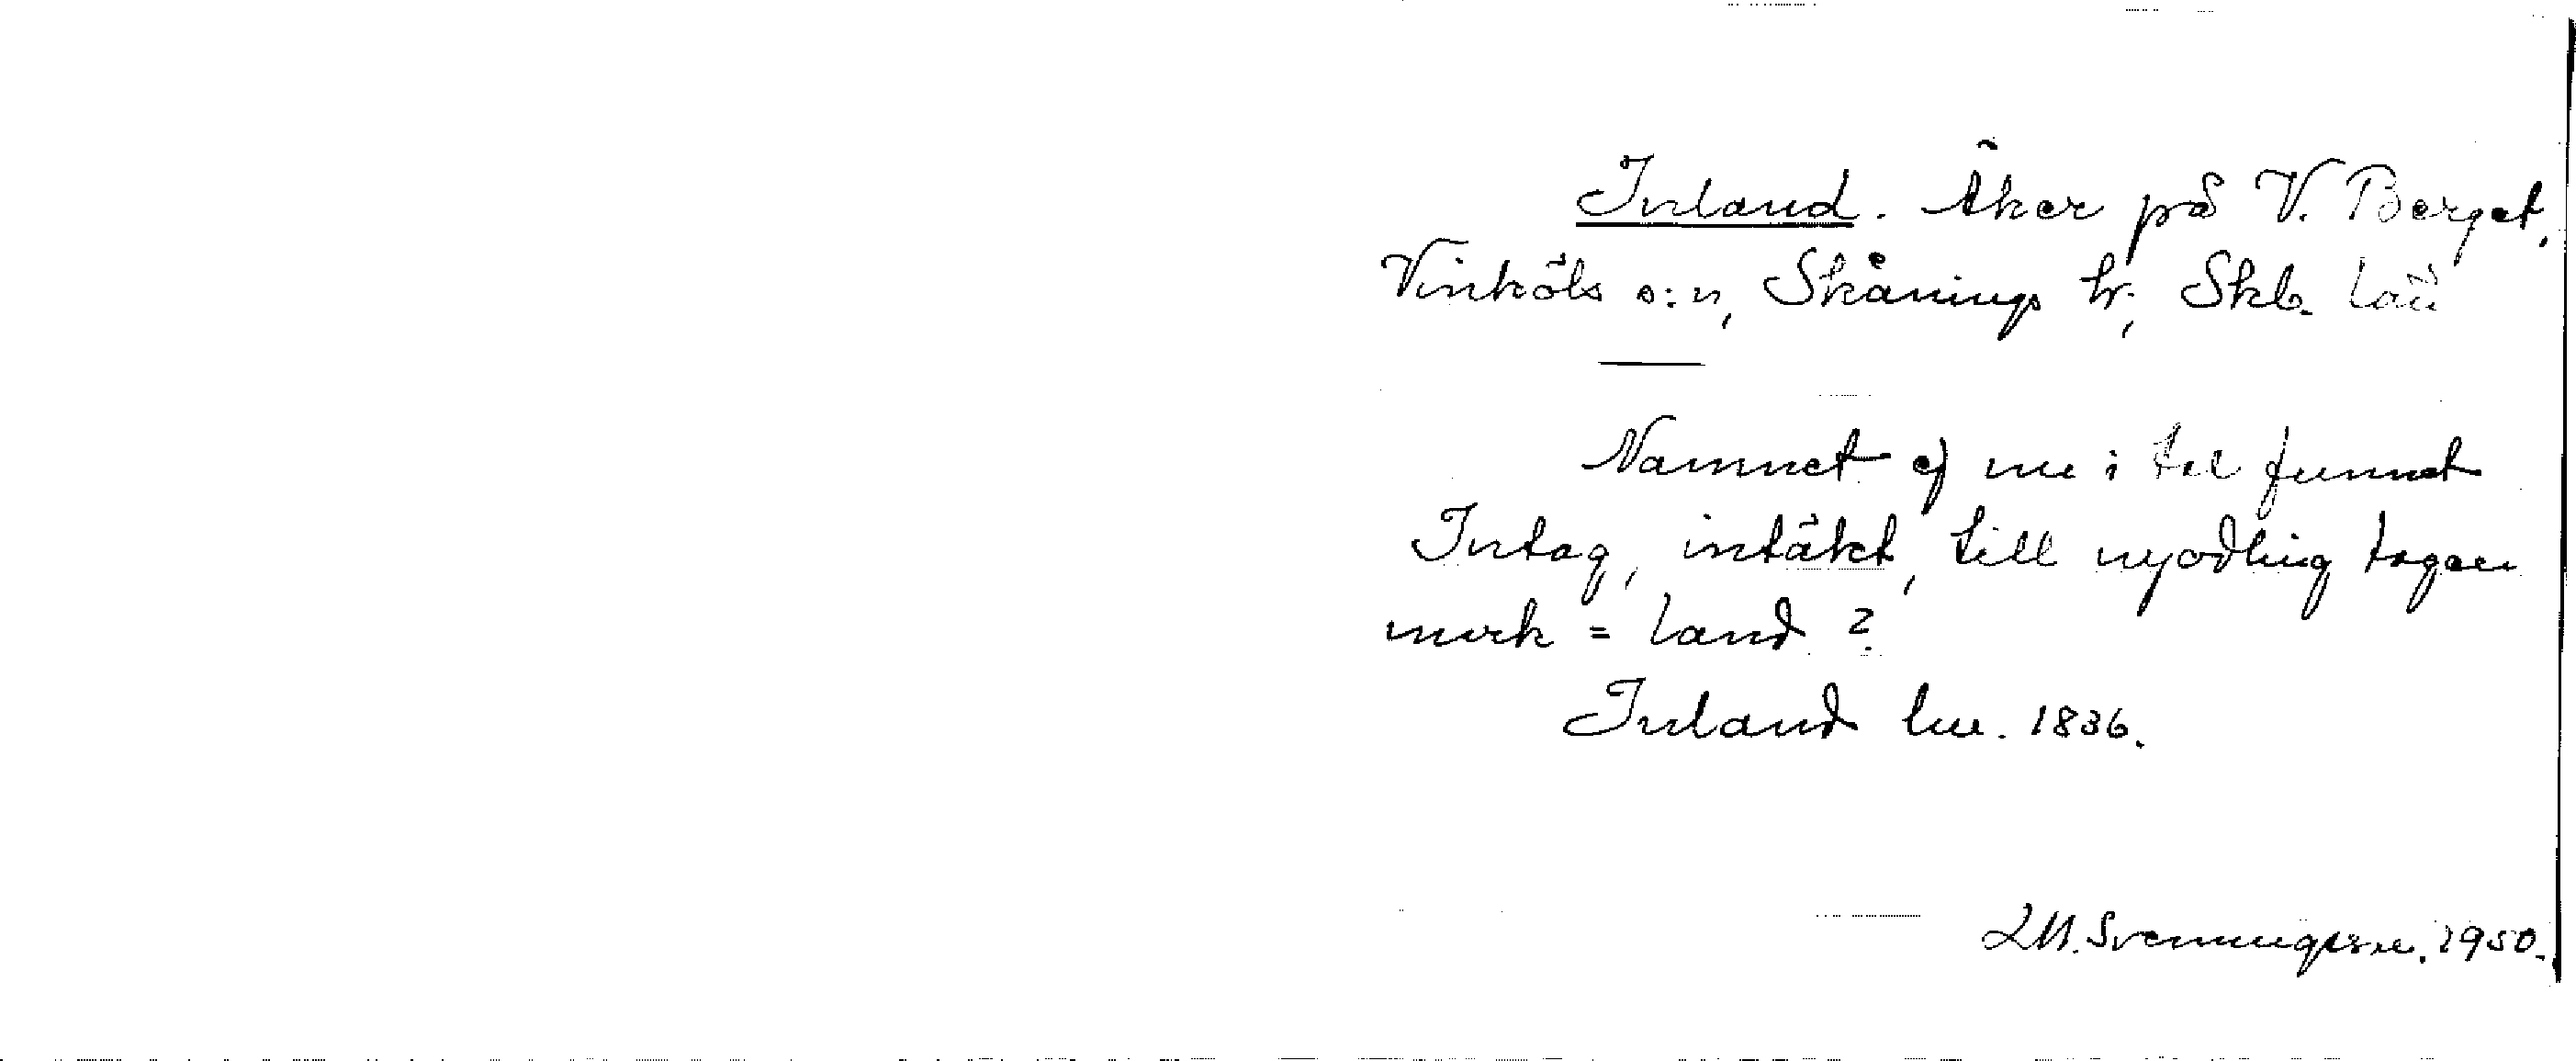 Inland. Åker på V. Berget,
Vinköls s:n, Skånings hr, Skb. län
Namnet ej nu i tal funnet
Intag, intäkt, till nyodling tagen
mark = land?
Inland lm. 1836.
LM. Svenungsson. 1950.